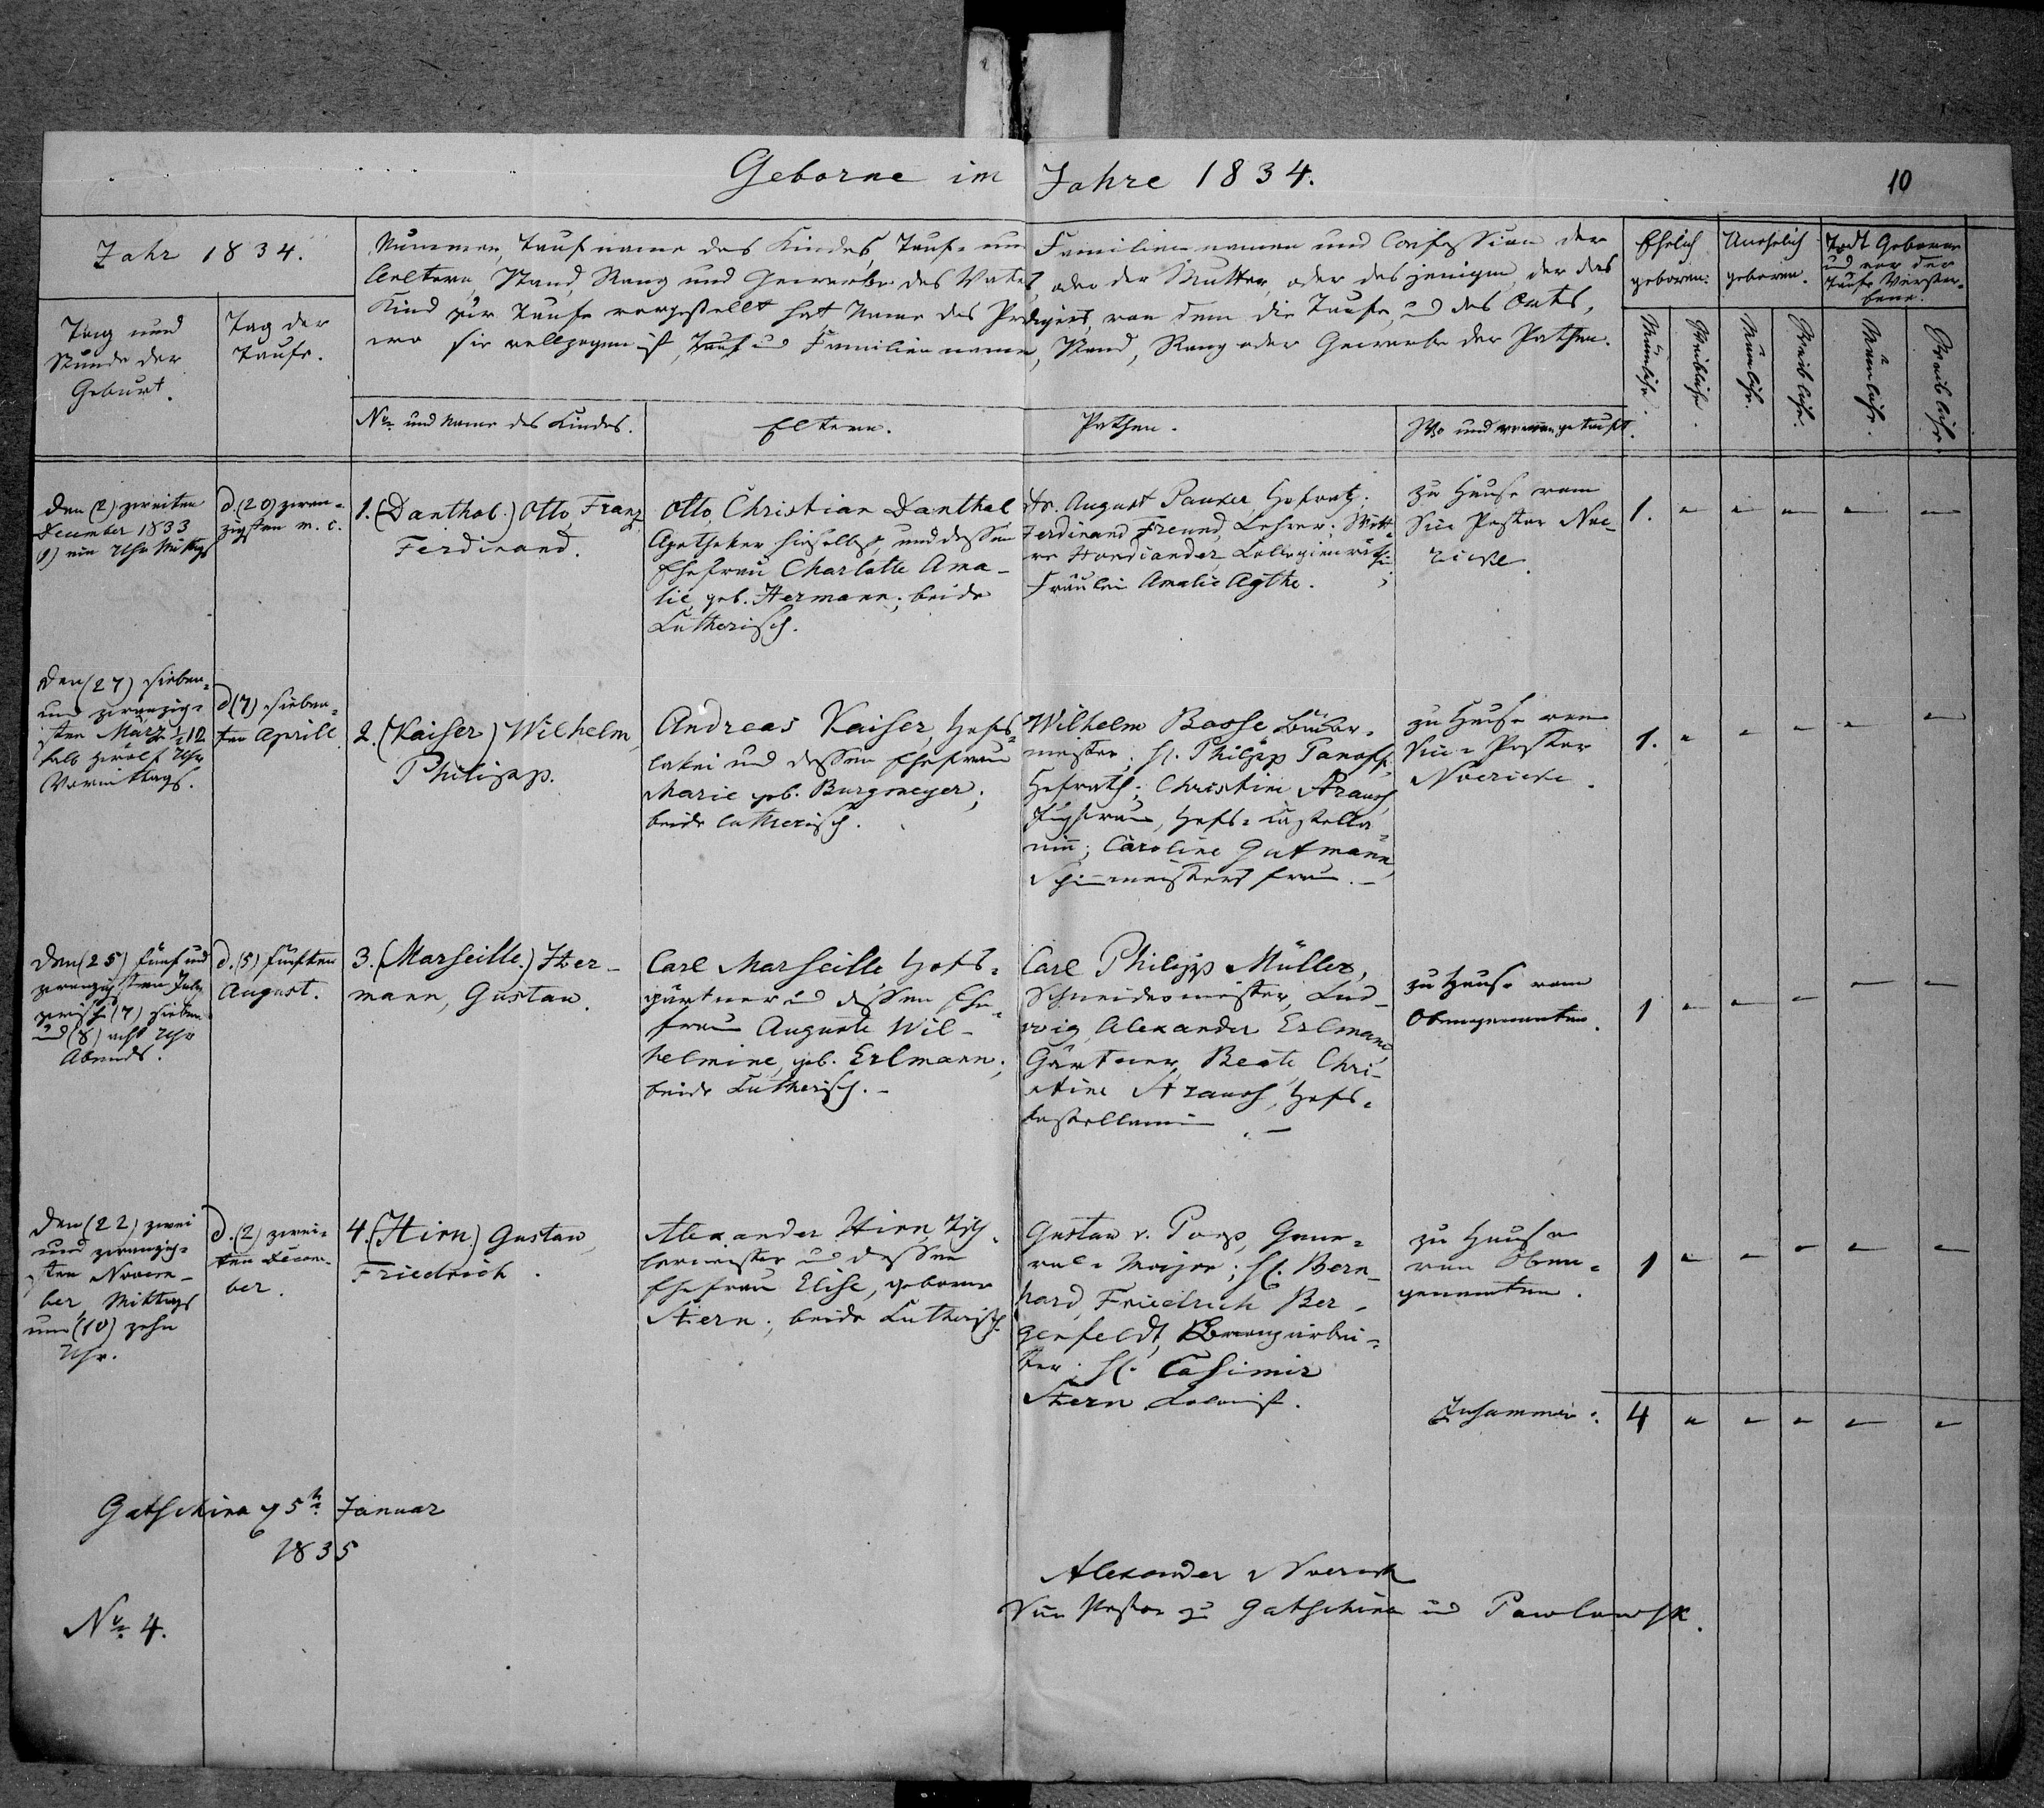 Geborne im Jahre 1834.
10
Jahr 1834.
Tag und
Stunde der
Geburt.
Tag der
Taufe.
Nummer, Taufname des Kindes, Tauf- und Familiennamen und Confession der
Aeltern, Stand, Rang und Gewerbe des Vaters, oder der Mutter, oder desjenigen, der das
Kind zur Taufe vorgestellt hat, Name des Predigers, von dem die Taufe, und des Orts,
wo sie vollzogen ist, Tauf und Familienname, Stand, Rang oder Gewerbe der Pathen.
No und Name des Kindes.
Eltern.
Pathen.
Wo und von wem getauft.
Ehelich
geboren.
Unehelich
geboren.
Todt Geborene
und vor der
Taufe Verstor-
bene.
Männliche.
Weibliche.
Männliche.
Weibliche.
Männliche.
Weibliche.
Den (2) zweiten
December 1833
(1) ein Uhr Mittags
d. (20) zwan-
zigsten m. c.
1. (Danthal.) Otto, Franz
Ferdinand.
Otto, Christian Danthal
Apotheker hieselbst, und dessen
Ehefrau Charlotte Ama-
lie, geb. Hermann; beide
Lutherisch.
Dr. August Pauker, Hofrath;
Ferdinand Freund, Lehrer;
Collegienräthin;
Fräulein Amalie Agthe.
zu Hause vom
Vice Pastor Noe-
ricke.
1. - - - - -
Den (27) sieben-
und zwanzig-
sten März ½12
halb zwölf Uhr
Vormittags.
d (7) sieben-
ten Aprill.
2. (Kaiser) Wilhelm,
Philipp.
Andreas Kaiser, Hofs-
lakei und dessen Ehefrau
Marie geb. Burgmeyer;
beide lutherisch.
Wilhelm Basse
meister; H. Philipp Tanoff,
Hofrath; Christine Strauch
Jungfrau, Hofs-Castella-
nin; Caroline Gutmann,
frau. -
zu Hause vom
Vice-Pastor
Noericke.
1. - - - - -
Den (25) fünf und
zwanzigsten July
zwisch (7) sieben
und (8) acht Uhr
Abends.
d. (5) fünften
August.
3. (Marseille.) Her-
mann, Gustav.
Carl Marseille, Hofs-
gärtner und dessen Ehe-
frau Auguste Wil-
helmine, geb. Erlmann;
beide Lutherisch. -
Carl Philipp Müller,
Schneidermeister, Lud-
wig, Alexander Erlmann,
Gärtner, Beate, Chri-
stine Strauch, Hofs-
kastellanin. -
zu Hause vom
Obengenannten.
1 - - - - -
Den (22) zwei
und zwanzig-
sten Novem-
ber, Mittags
um (10) zehn
Uhr.
d. (2) zwei-
ten Decem-
ber.
4. (Hirn.) Gustav,
Friedrich.
Alexander Hirn, Tisch-
lermeister und dessen
Ehefrau Elise, geborene
Stern; beide Lutherisch.
Gustav v. Poep, Gene-
ral-Major; H. Bern-
hard, Friedrich Ber-
genfeldt, Bronzearbei-
ter; H. Casimir
Stern Kolonist.
zu Hause
vom Oben-
genannten.
1 - - - - -
Zusammen: 4 - - - - -
Gatschina d 5 Januar
1835
No. 4.
Alexander Noericke
Vice Pastor zu Gatschina und Pawlowsk.